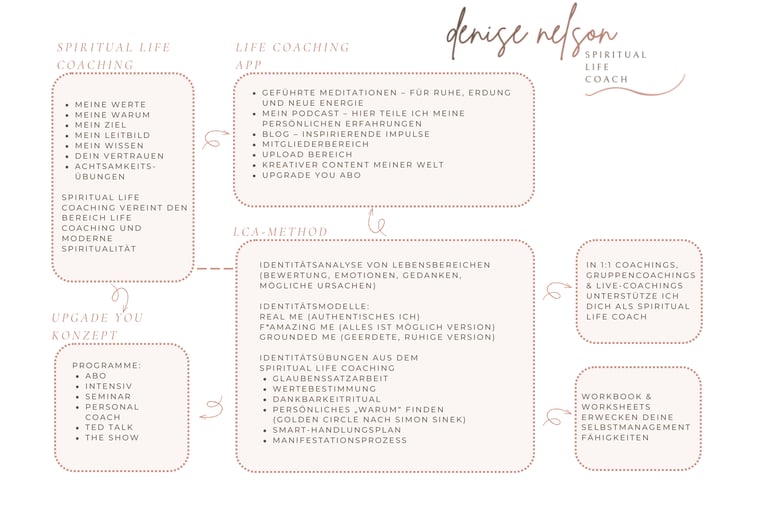 denise nelson
SPIRITUAL
LIFE
COACH
SPIRITUAL LIFE
COACHING
MEINE WERTE
MEINE WARUM
MEIN ZIEL
MEIN LEITBILD
MEIN WISSEN
DEIN VERTRAUEN
ACHTSAMKEITS-
ÜBUNGEN
SPIRITUAL LIFE
COACHING VEREINT DEN
BEREICH LIFE
COACHING UND
MODERNE
SPIRITUALITÄT
LIFE COACHING
APP
GEFÜHRTE MEDITATIONEN – FÜR RUHE, ERDUNG
UND NEUE ENERGIE
MEIN PODCAST – HIER TEILE ICH MEINE
PERSÖNLICHEN ERFAHRUNGEN
BLOG – INSPIRIERENDE IMPULSE
MITGLIEDERBEREICH
UPLOAD BEREICH
KREATIVER CONTENT MEINER WELT
UPGRADE YOU ABO
LCA-METHOD
IDENTITÄTSANALYSE VON LEBENSBEREICHEN
(BEWERTUNG, EMOTIONEN, GEDANKEN,
MÖGLICHE URSACHEN)
IDENTITÄTSMODELLE:
REAL ME (AUTHENTISCHES ICH)
F*AMAZING ME (ALLES IST MÖGLICH VERSION)
GROUNDED ME (GEERDETE, RUHIGE VERSION)
IDENTITÄTSÜBUNGEN AUS DEM
SPIRITUAL LIFE COACHING
GLAUBENSSATZARBEIT
WERTEBESTIMMUNG
DANKBARKEITRITUAL
PERSÖNLICHES „WARUM“ FINDEN
(GOLDEN CIRCLE NACH SIMON SINEK)
SMART-HANDLUNGSPLAN
MANIFESTATIONSPROZESS
IN 1:1 COACHINGS,
GRUPPENCOACHINGS
& LIVE-COACHINGS
UNTERSTÜTZE ICH
DICH ALS SPIRITUAL
LIFE COACH
UPGADE YOU
KONZEPT
PROGRAMME:
ABO
INTENSIV
SEMINAR
PERSONAL
COACH
TED TALK
THE SHOW
WORKBOOK &
WORKSHEETS
ERWECKEN DEINE
SELBSTMANAGEMENT
FÄHIGKEITEN